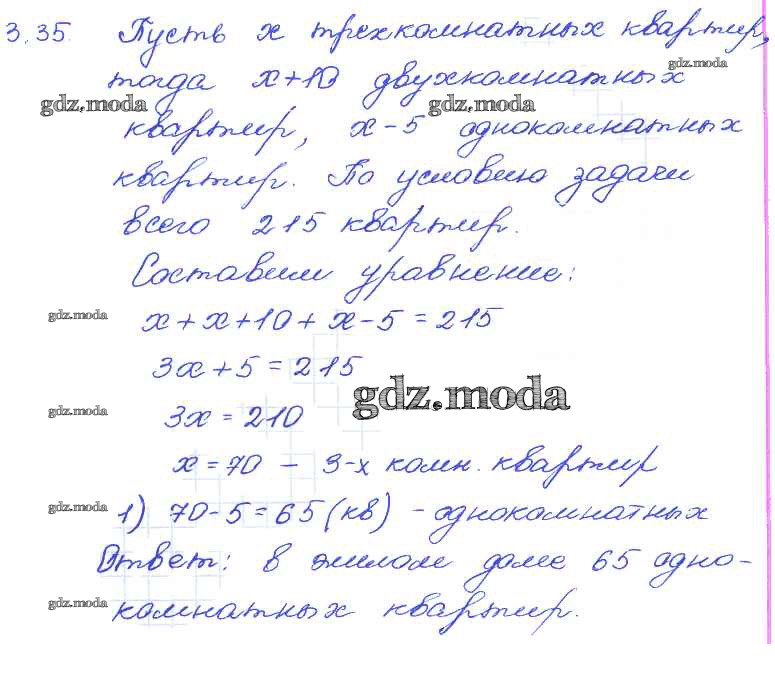 3.35. Пусть x трехкомнатных квартир,
gdz.moda
тогда x+10 двухкомнатных
gdz.moda gdz.moda
квартир, x-5 однокомнатных
квартир. По условию задачи
всего 215 квартир.
Составим уравнение:
gdz.moda
x+x+10+x-5=215
3x+5=215
gdz.moda
gdz.moda
3x=210
x=70 - 3-х комн. квартир
gdz.moda
1) 70-5=65(кв) - однокомнатных
Ответ: в жилом доме 65 одно-
gdz.moda
комнатных квартир.